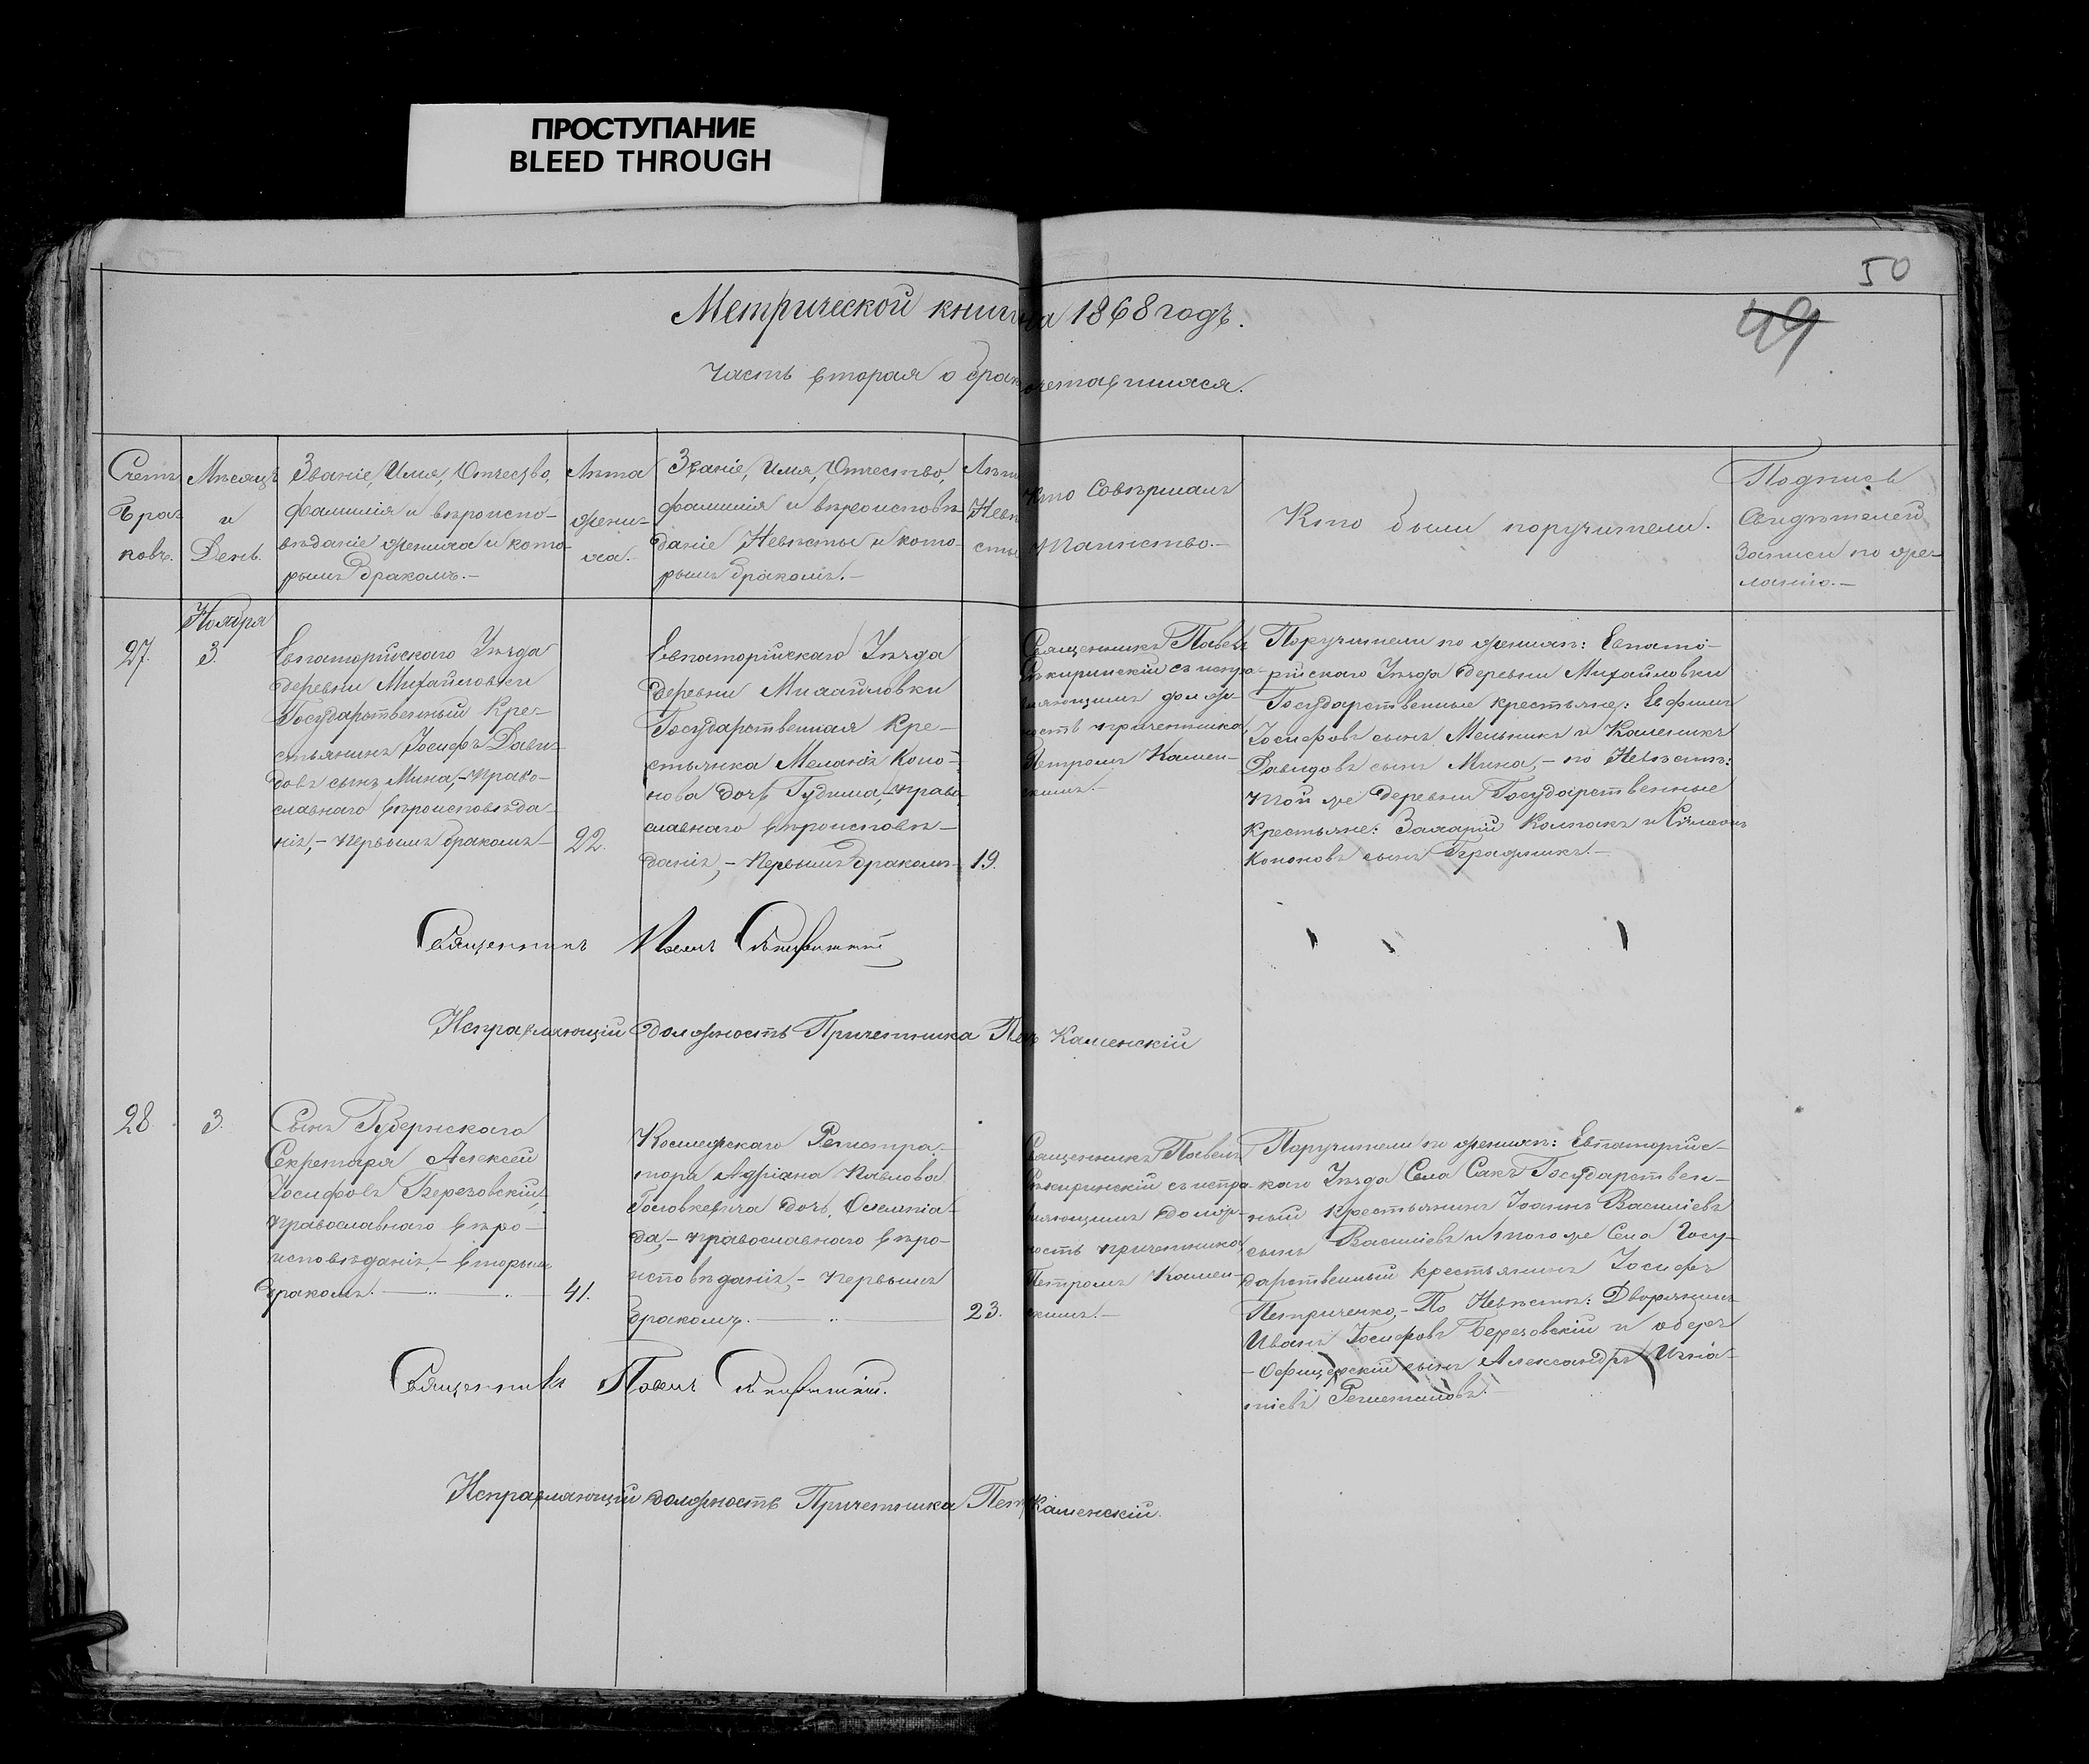 ПРОСТУПАНИЕ
BLEED THROUGH
50
49
Метрической книги на 1868 годъ.
Часть вторая о бракосочетавшихся.
Счетъ Браковъ.
Мѣсяцъ и День.
Званіе, Имя, Отчество,
фамилія и вѣроиспо-
вѣданіе жениха и кото-
рымъ бракомъ.-
Лѣта
жени-
ха.
Званіе, Имя, Отчество,
фамилія и вѣроисповѣ-
даніе Невѣсты и кото-
рымъ бракомъ.-
Лѣта
Невѣ
сты
Кто Совѣршалъ
Таинство.-
Кто были поручители.
Подпись
Свидѣтелей
Записи по же-
ланію.-
Ноября
27.
3.
Евпаторійскаго Уѣзда
деревни Михайловки
Государственный Кре-
стьянинъ Іосифъ Дави-
довъ сынъ Мина,- право-
славнаго вѣроисповѣда-
нія,- первымъ бракомъ-
22.
Евпаторійскаго Уѣзда
деревни Михайловки
Государственная Кре-
стьянка Меланія Коно-
нова дочь Гудима,- право-
славнаго вѣроисповѣ-
данія,- первымъ бракомъ-
19.
Священникъ Павелъ
съ испра-
вляющимъ долж-
ность причетника
Петромъ Камен-
скимъ.-
Поручители по женихѣ: Евпато-
рійскаго Уѣзда деревни Михайловки
Государственные крестьяне: Евфимъ
Іосифовъ сынъ Мельникъ и Каленикъ
Давидовъ сынъ Мина,- по Невѣстѣ:
той же деревни Государственные
Крестьяне: Захарій Колпакъ и
Кононовъ сынъ
Священникъ Павелъ
Исправляющій должность Причетника Петръ Каменскій
28
3.
Сынъ Губернскаго
Секретаря Алексѣй
Іосифовъ Березовскій,
православнаго вѣро-
исповѣданія,- вторымъ
бракомъ.-
41.
Коллежскаго Регистра-
тора Адріана Павлова
Головкевича дочь, Олимпіа-
да,- православнаго вѣро-
исповѣданія,- первымъ
бракомъ.-
23.
Священникъ Павелъ
съ испра-
вляющимъ долж-
ность причетника
Петромъ Камен-
скимъ.-
Поручители по женихѣ: Евпаторійс-
каго Уѣзда Села Сакъ Государствен-
ный крестьянинъ Іоаннъ Василіевъ
сынъ Василіевъ и того же Села Госу-
дарственный крестьянинъ Іосифъ
Петриченко,- По Невѣстѣ: Дворянинъ
Иванъ Іосифовъ Березовскій и оберъ
-Офицерскій сынъ Александръ Игна-
тіевъ
Священникъ Павелъ
Исправляющій должность Причетника Петръ Каменскій.